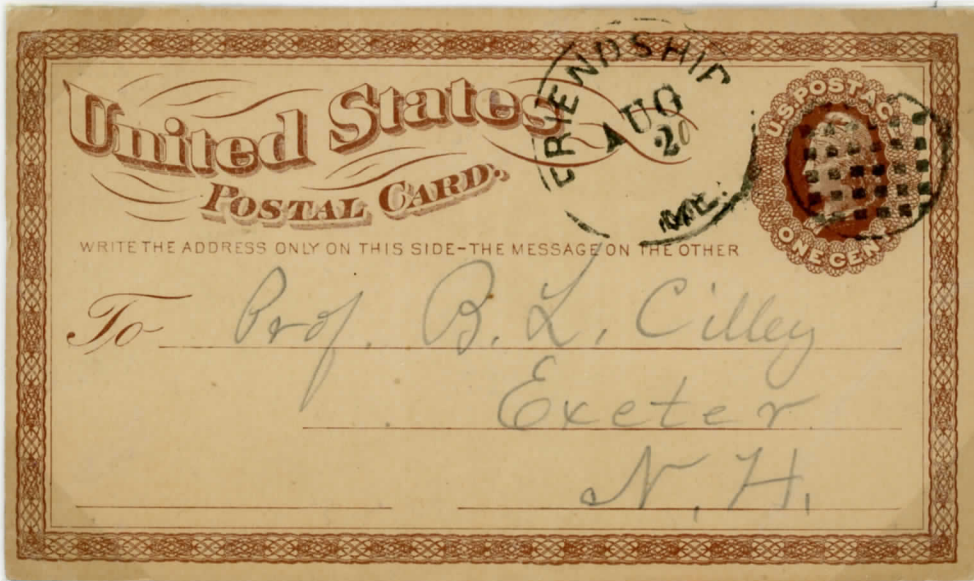 United States
POSTAL CARD.
FRIENDSHIP
AUG
20
ME.
U.S. POSTAGE
ONE CENT
WRITE THE ADDRESS ONLY ON THIS SIDE-THE MESSAGE ON THE OTHER
To Prof. B. L. Cilley
Exeter
N. H.